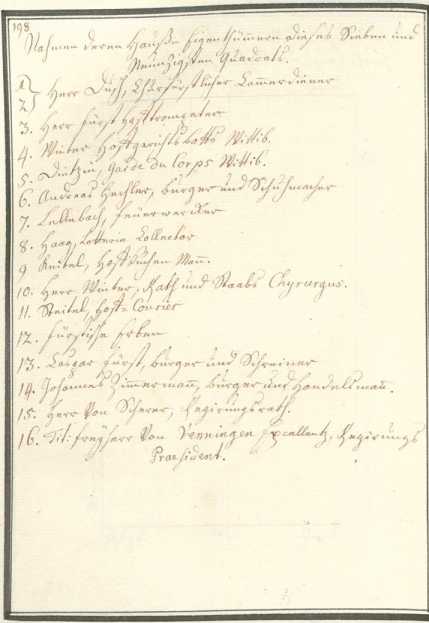 198
Nahmen deren Haußs Eigenthümern dieses Sieben und
Neunzigsten Quadrats.
1
2 } Herr Churfürstlicher Cammerdiener
3. Herr Fürst Hofftrompeter
4. Winter Hoffgerichts Botts Wittib.
5. Garde du Corps Wittib.
6. Andreas Bürger und Schuhmacher
7. Feuerwercker
8. Haag, Lotterie Collector
9. Hoffkuchen Mann.
10. Herr Winter, Rath und Staabs Chyrurgus.
11. Hoff-Courier
12. Fürstische Erben
13. Caspar Fürst, Bürger und Schreiner
14. Johannes Zimmermann, Bürger und Handelsmann.
15. Herr Von Scherer, Regierungsrath.
16. Tit: Freyherr Von Venningen Excellentz, Regierungs
Praesident.